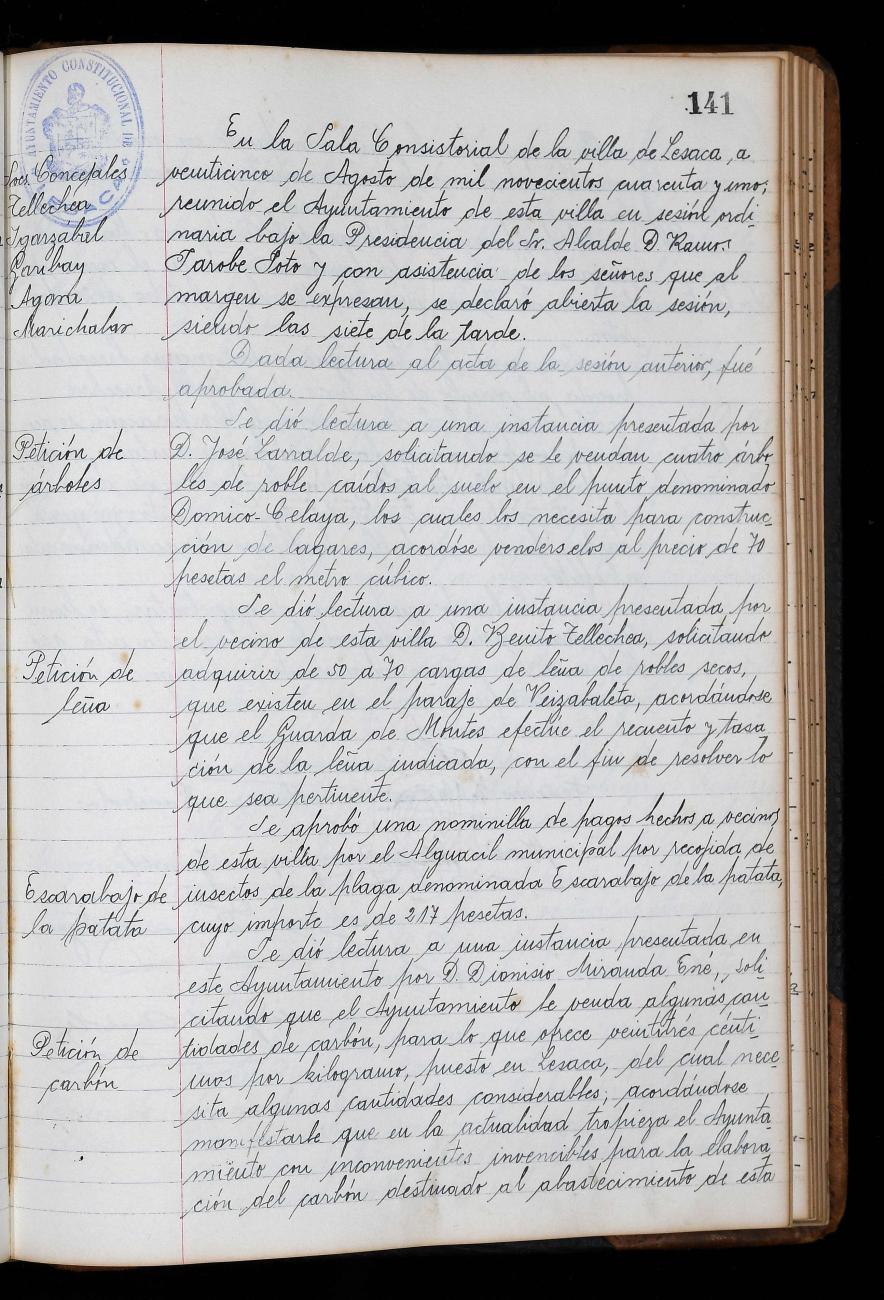 141
AYUNTAMIENTO CONSTITUCIONAL DE
LESACA
Sres. Concejales
Tellechea
Igarzabal
Garibay
Agara
Marichalar
En la Sala Consistorial de la villa de Lesaca, a
veinticinco de Agosto de mil novecientos cuarenta y uno;
reunido el Ayuntamiento de esta villa en sesión ordi-
naria bajo la Presidencia del Sr. Alcalde D. Ramos
Tarobe Soto y con asistencia de los señores que al
margen se expresan, se declaró abierta la sesión,
siendo las siete de la tarde.
Dada lectura al acta de la sesión anterior, fué
aprobada.
Petición de
árboles
Se dió lectura a una instancia presentada por
D. José Larralde, solicitando se le vendan cuatro árbo-
les de roble caidos al suelo en el punto denominado
Domico-Celaya, los cuales los necesita para construc-
ción de lagares, acordóse venderselos al precio de 70
pesetas el metro cúbico.
Petición de
leña
Se dió lectura a una instancia presentada por
el vecino de esta villa D. Benito Tellechea, solicitando
adquirir de 50 a 70 cargas de leña de robles secos,
que existen en el paraje de Veizabaleta, acordándose
que el Guarda de Montes efectúe el recuento y tasa-
ción de la leña indicada, con el fin de resolver lo
que sea pertinente.
Escarabajo de
la patata
Se aprobó una nominilla de pagos hechos a vecinos
de esta villa por el Alguacil municipal por recojida de
insectos de la plaga denominada Escarabajo de la patata,
cuyo importe es de 217 pesetas.
Petición de
carbón
Se dió lectura a una instancia presentada en
este Ayuntamiento por D. Dionisio Miranda Ené, soli-
citando que el Ayuntamiento le venda algunas can-
tidades de carbón, para lo que ofrece veintitrés cénti-
mos por kilogramo, puesto en Lesaca, del cual nece-
sita algunas cantidades considerables; acordándose
manifestarle que en la actualidad tropieza el Ayunta-
miento con inconvenientes invencibles para la elabora-
ción del carbón destinado al abastecimiento de esta